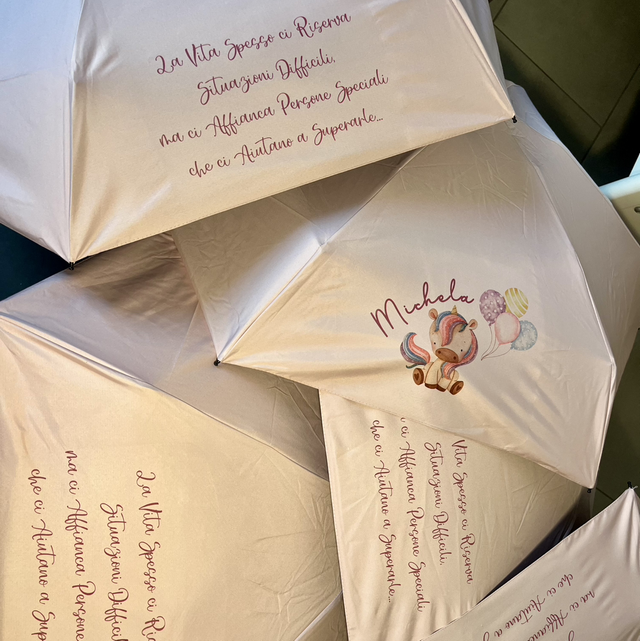 La Vita Spesso ci Riserva
Situazioni Difficili,
ma ci Affianca Persone Speciali
che ci Aiutano a Superarle...
Michela
La Vita Spesso ci
Situazioni Diffici
ma ci Affianca Persone
che ci Aiutano a Sup
Vita Spesso ci Riserva
Situazioni Difficili,
ci Affianca Persone Speciali
che ci Aiutano a Superarle...
ma ci Affianca
che ci Aiutano a